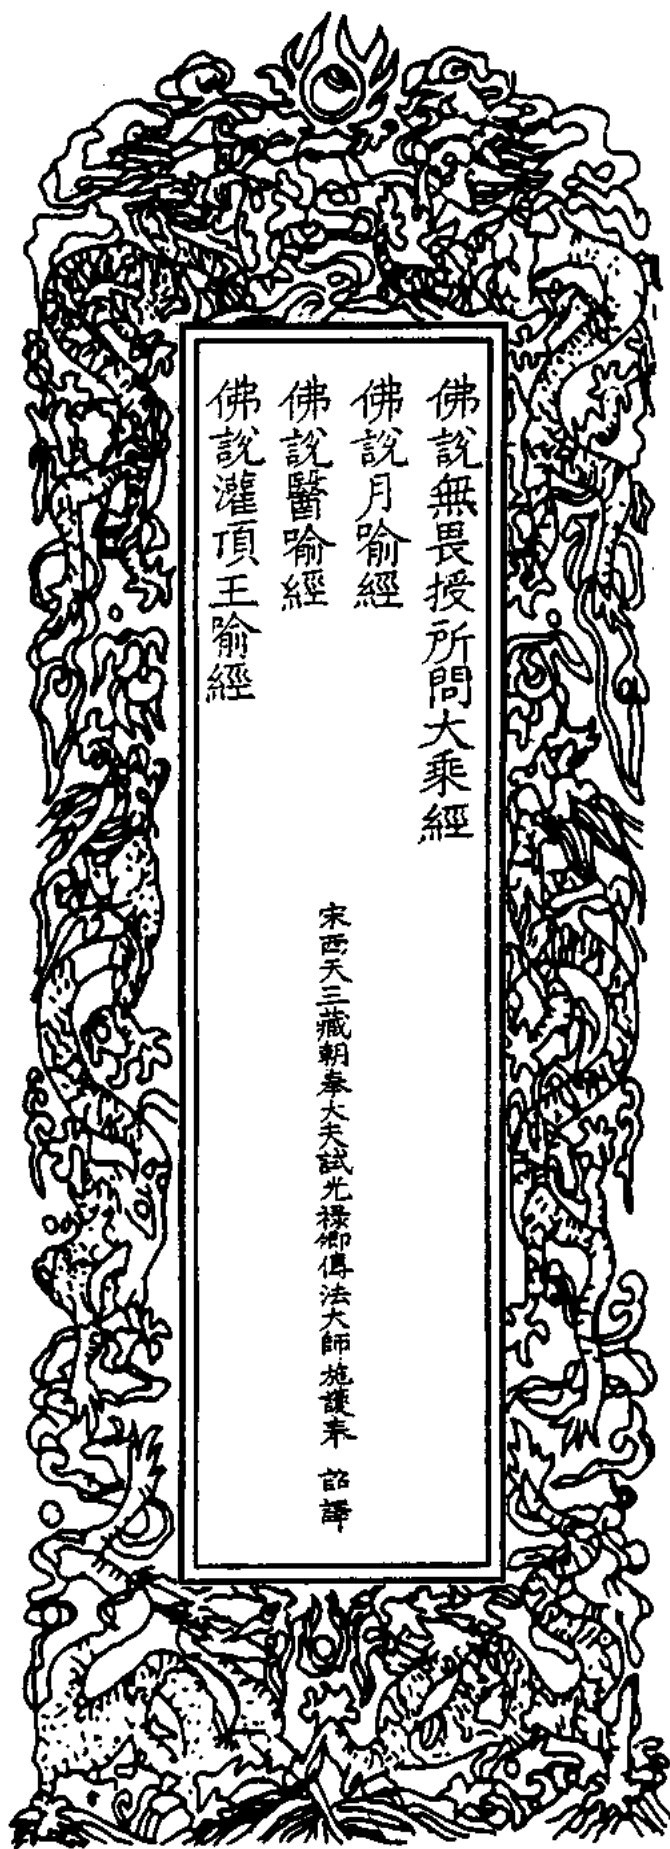 佛說無畏授所問大乘經
佛說月喻經
佛說醫喻經
佛說灌頂王喻經
宋西天三藏朝奉大夫試光祿卿傳法大師施護奉 詔譯